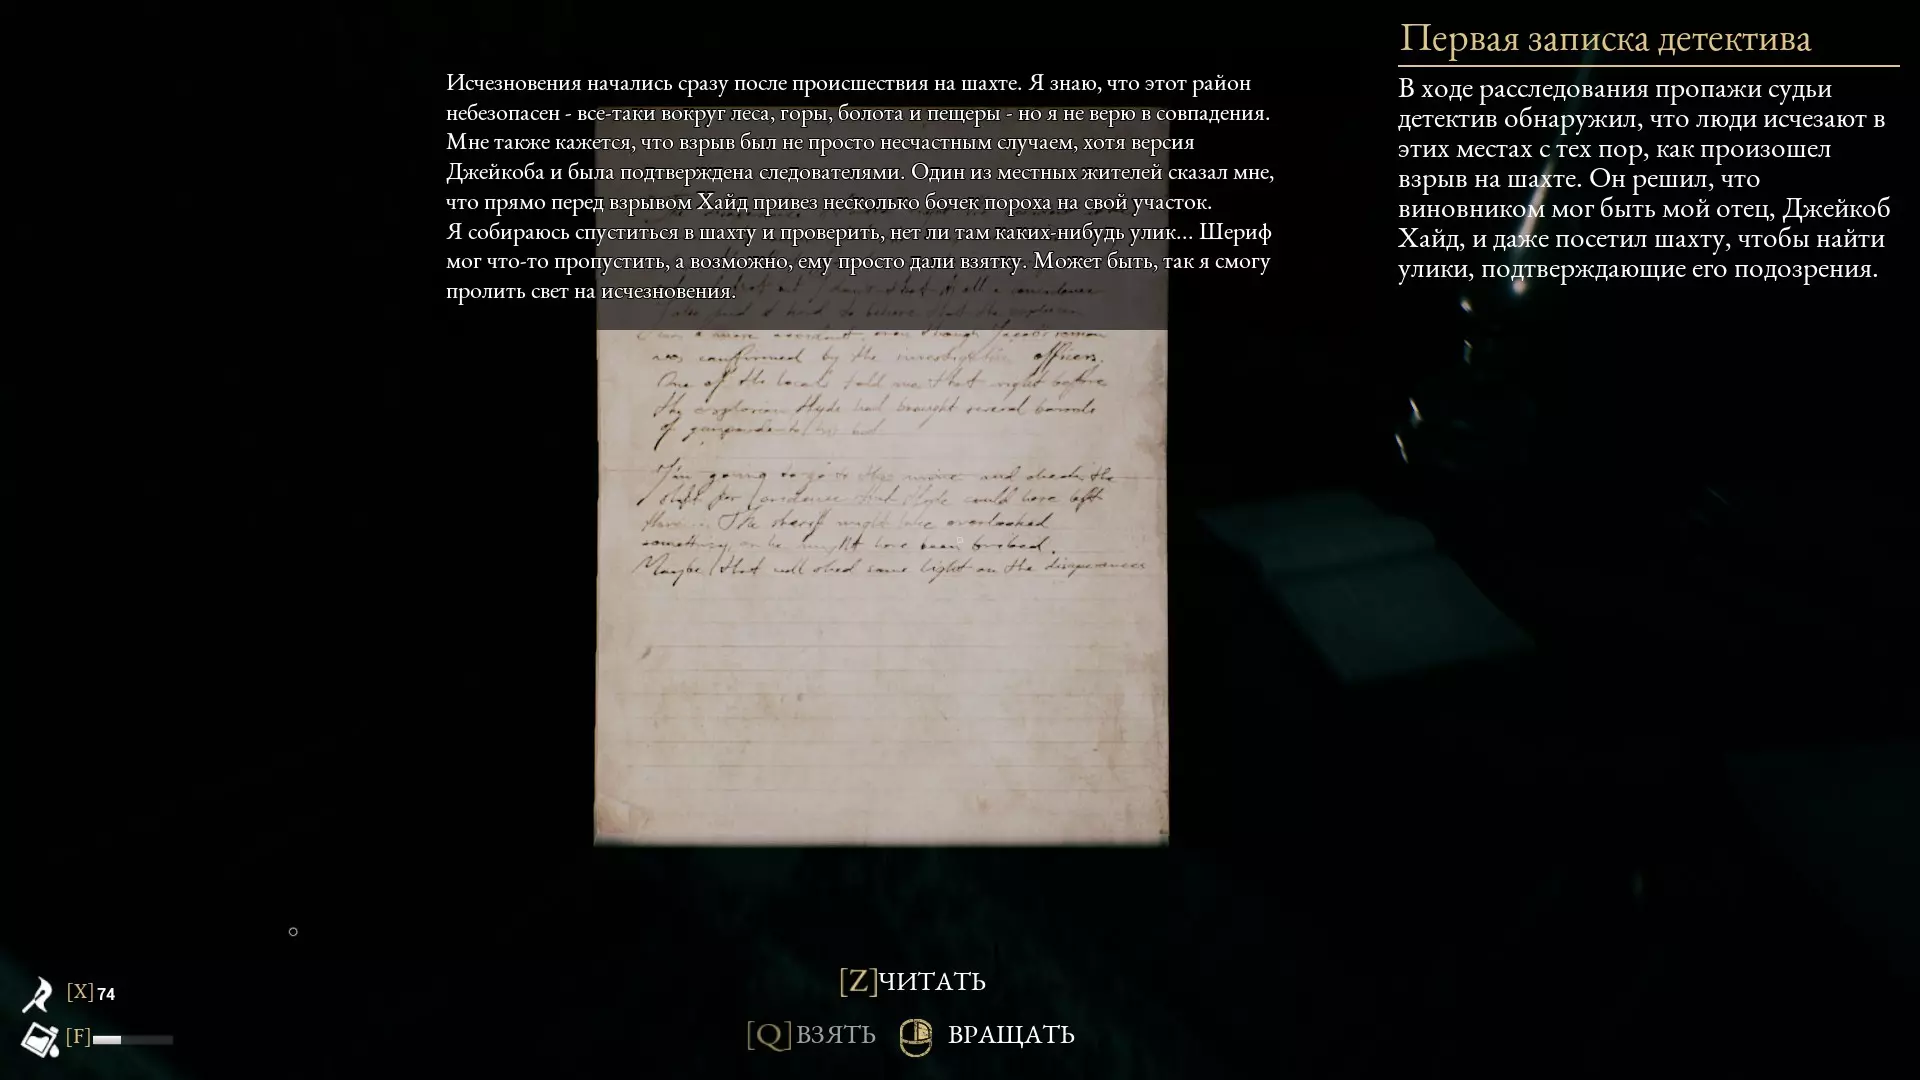 Первая записка детектива
В ходе расследования пропажи судьи
детектив обнаружил, что люди исчезают в
этих местах с тех пор, как произошел
взрыв на шахте. Он решил, что
виновником мог быть мой отец, Джейкоб
Хайд, и даже посетил шахту, чтобы найти
улики, подтверждающие его подозрения.
Исчезновения начались сразу после происшествия на шахте. Я знаю, что этот район
небезопасен - все-таки вокруг леса, горы, болота и пещеры - но я не верю в совпадения.
Мне также кажется, что взрыв был не просто несчастным случаем, хотя версия
Джейкоба и была подтверждена следователями. Один из местных жителей сказал мне,
что прямо перед взрывом Хайд привез несколько бочек пороха на свой участок.
Я собираюсь спуститься в шахту и проверить, нет ли там каких-нибудь улик... Шериф
мог что-то пропустить, а возможно, ему просто дали взятку. Может быть, так я смогу
пролить свет на исчезновения.
was confirmed by the investigation officers.
One of the locals told me that right before
the explosion Hyde had brought several barrels
of gunpowder to his
I'm going to go to the mine and check the
for evidence that Hyde could have left
there... The sheriff might have overlooked
something, or he might have been bribed.
Maybe that will shed some light on the
[X] 74
[F]
[Z] ЧИТАТЬ
[Q] ВЗЯТЬ ВРАЩАТЬ